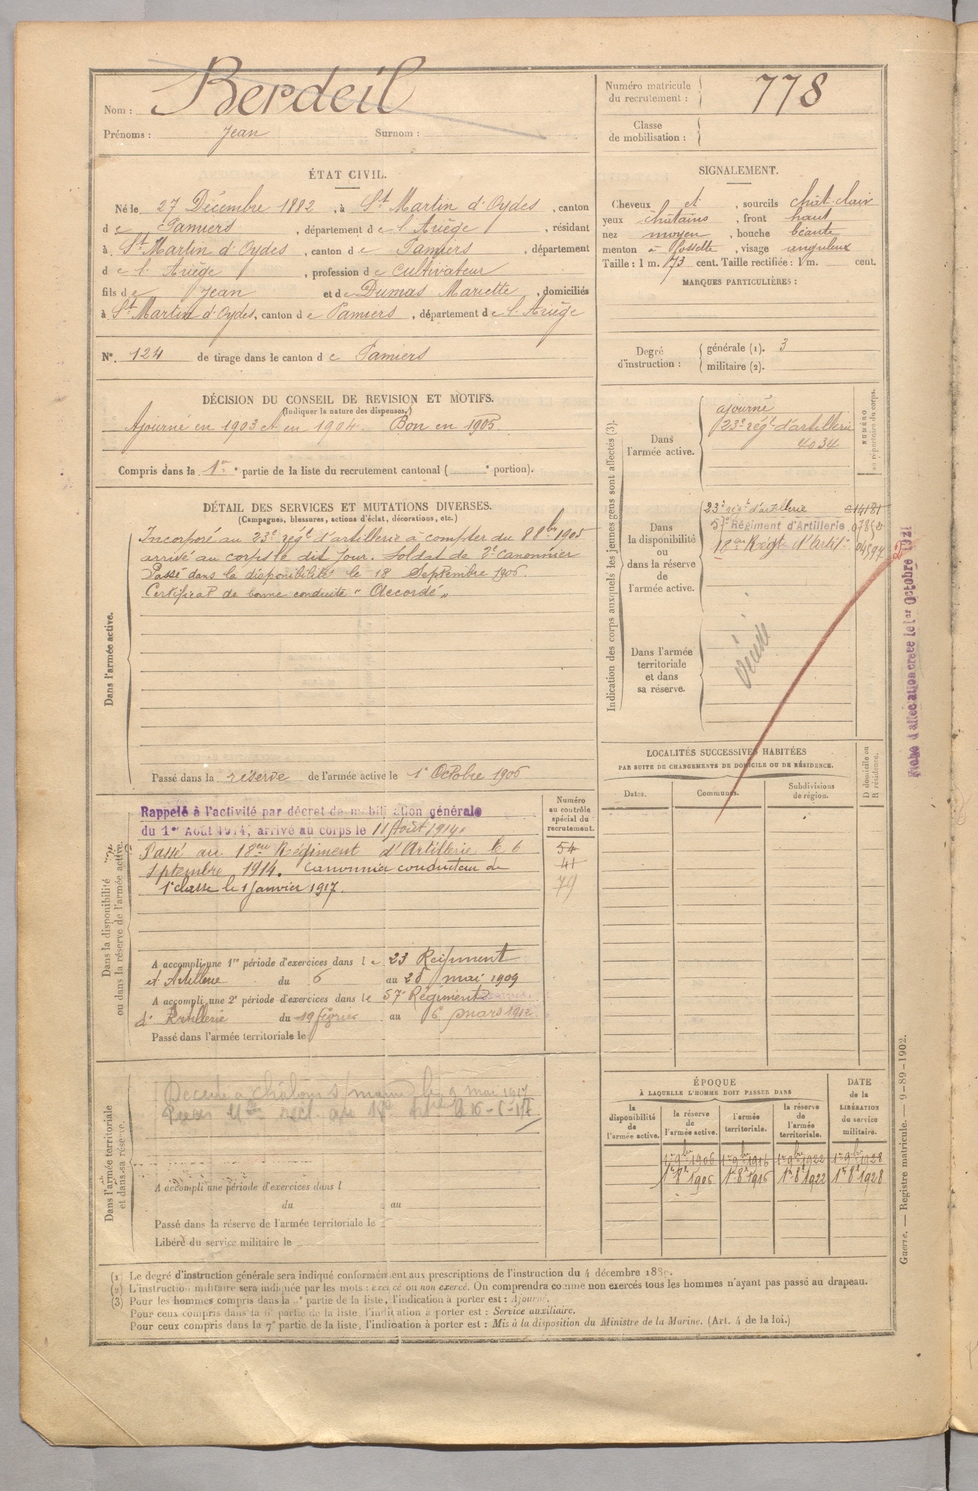 Nom : Berdeil
Prénoms : Jean Surnom :
Numéro matricule du recrutement : 778
Classe de mobilisation :
ÉTAT CIVIL.
Né le 27 Décembre 1882, à St Martin d'Oydes, canton
d e Pamiers, département d e l'Ariège, résidant
à St Martin d'Oydes, canton d e Pamiers, département
d e l'Ariège, profession d e cultivateur
fils d e Jean et d e Dumas Mariette, domiciliés
à St Martin d'Oydes, canton d e Pamiers, département d e l'Ariège
N°. 124 de tirage dans le canton d e Pamiers
SIGNALEMENT.
Cheveux et, sourcils chât-clair
yeux chatains, front haut
nez moyen, bouche béante
menton à fossette, visage anguleux
Taille : 1 m. 73 cent. Taille rectifiée : 1 m. cent.
MARQUES PARTICULIÈRES :
Degré d'instruction : générale (1). 3
militaire (2).
DÉCISION DU CONSEIL DE REVISION ET MOTIFS.
(Indiquer la nature des dispenses.)
Ajourné en 1903 et en 1904. Bon en 1905
Compris dans la 1re partie de la liste du recrutement cantonal ( e portion).
DÉTAIL DES SERVICES ET MUTATIONS DIVERSES.
(Campagnes, blessures, actions d'éclat, décorations, etc.)
Dans l'armée active.
Incorporé au 23e régt d'artillerie à compter du 8 8bre 1905
arrivé au corps le dit jour. Soldat de 2e canonnier
Passé dans la disponibilité le 18 Septembre 1906.
Certificat de bonne conduite " Accordé "
Passé dans la réserve de l'armée active le 1er Octobre 1906
Indication des corps auxquels les jeunes gens sont affectés (3).
NUMÉRO au répertoire du corps.
Dans l'armée active.
ajourné
23e régt d'artillerie
4034
Dans la disponibilité ou dans la réserve de l'armée active.
23e régt d'artillerie
57e Régiment d'Artillerie
18me Régt d'Artie
Dans l'armée territoriale et dans sa réserve.
Fiche d'affectation créée le 1er Octobre 1921
LOCALITÉS SUCCESSIVES HABITÉES
PAR SUITE DE CHANGEMENTS DE DOMICILE OU DE RÉSIDENCE.
Dates. Communes. Subdivisions de région. D domicile ou R résidence.
Dans la disponibilité ou dans la réserve de l'armée active.
Numéro au contrôle spécial du recrutement.
54
41
79
Rappelé à l'activité par décret de mobilisation générale
du 1er Août 1914, arrivé au corps le 11 Août 1914.
Passé au 18me Régiment d'Artillerie le 6
Septembre 1914. Canonnier conducteur de
1e classe le 1 Janvier 1917.
A accompli une 1re période d'exercices dans l e 23 Régiment
d'Artillerie du 6 au 28 mai 1909
A accompli une 2e période d'exercices dans l e 57e Régiment
d'Artillerie du 19 février au 6 mars 1912
Passé dans l'armée territoriale le
Dans l'armée territoriale et dans sa réserve.
Décédé à Châlons s/ marne le 9 mai 1917
A accompli une période d'exercices dans l
du au
Passé dans la réserve de l'armée territoriale le
Libéré du service militaire le
ÉPOQUE
À LAQUELLE L'HOMME DOIT PASSER DANS
la disponibilité de l'armée active. la réserve de l'armée active. l'armée territoriale. la réserve de l'armée territoriale.
DATE de la LIBÉRATION du service militaire.
1er 9bre 1906 1er 9bre 1916 1er 9bre 1922 1er 9bre 1928
1er 8bre 1906 1er 8bre 1916 1er 8bre 1922 1er 8bre 1928
Guerre. — Registre matricule. — 9-89-1902.
(1) Le degré d'instruction générale sera indiqué conformément aux prescriptions de l'instruction du 4 décembre 1889.
(2) L'instruction militaire sera indiquée par les mots : exercé ou non exercé. On comprendra comme non exercés tous les hommes n'ayant pas passé au drapeau.
(3) Pour les hommes compris dans la e partie de la liste, l'indication à porter est : Ajourné.
Pour ceux compris dans la 6e partie de la liste, l'indication à porter est : Service auxiliaire.
Pour ceux compris dans la 7e partie de la liste, l'indication à porter est : Mis à la disposition du Ministre de la Marine. (Art. 4 de la loi.)